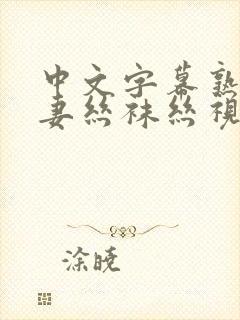 中文字幕熟
妻丝袜丝视
涂晓